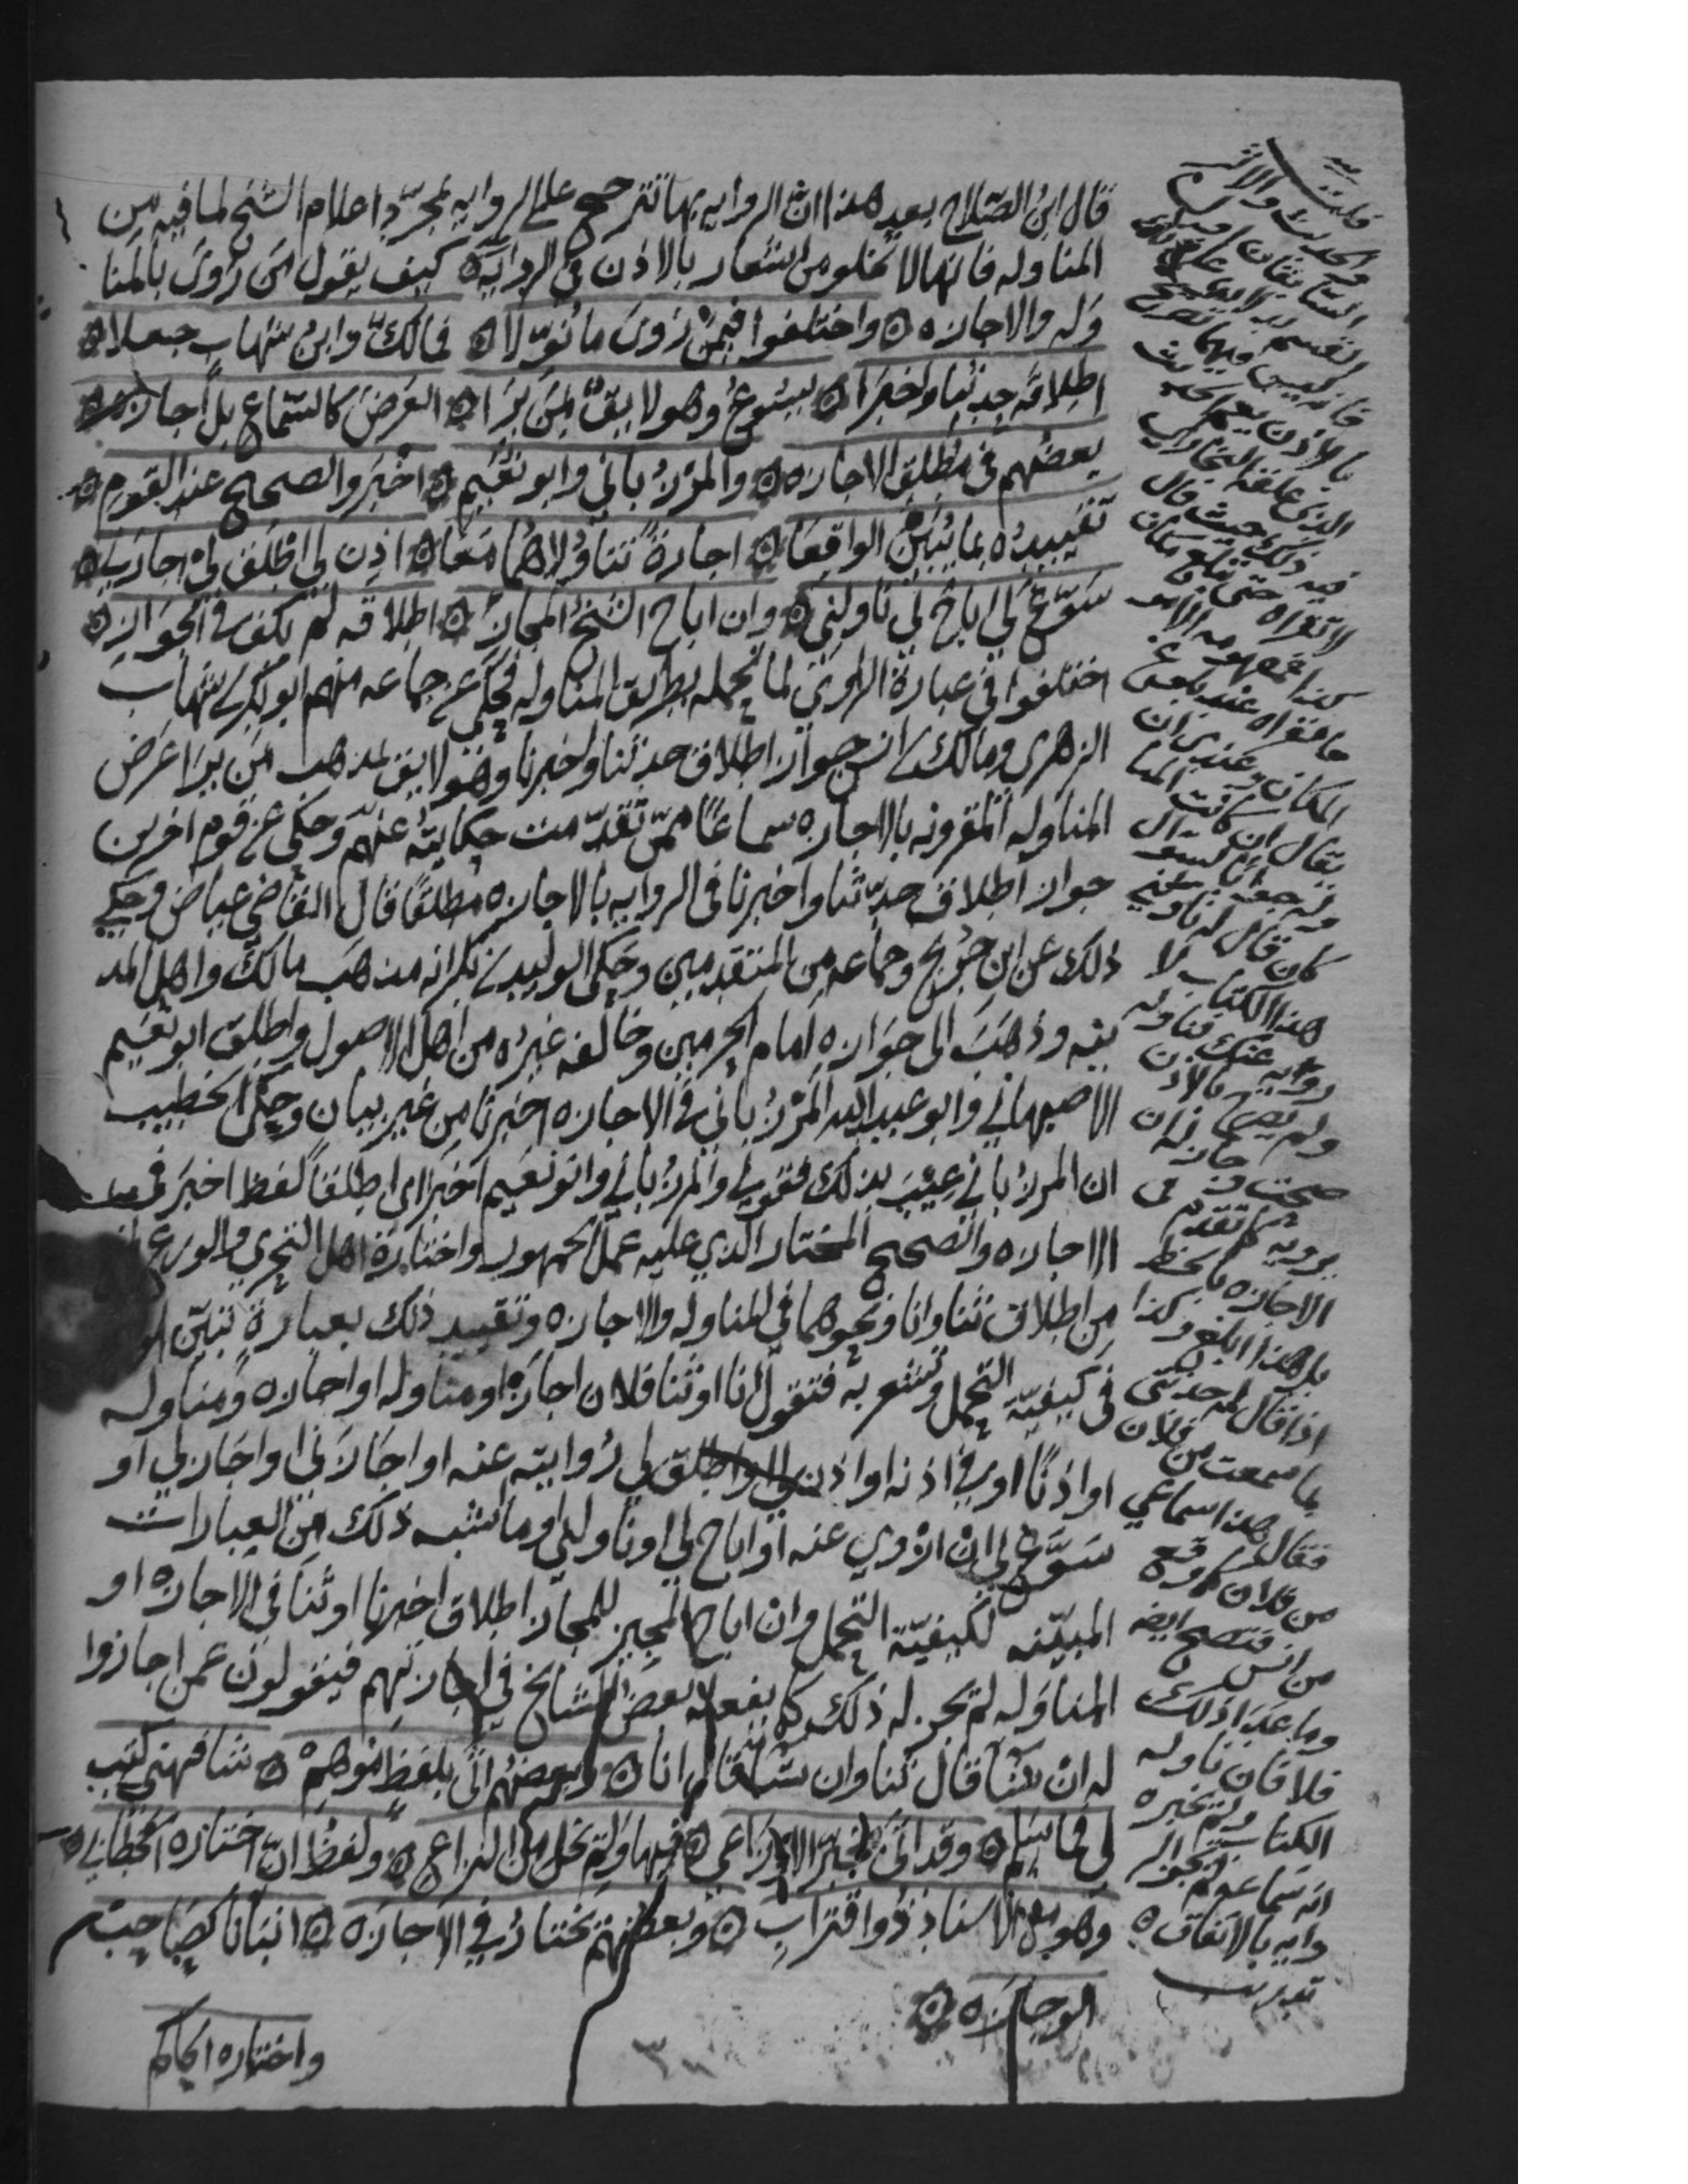 قال ابن الصلاح بعد هذا ان الرواية بها تترجح على الرواية بمجرد اعلام الشيخ لما فيه من
المناوله فانها لا تخلو من اشعار بالاذن في الروايه كيف يقول من روى بالمنا
وله والاجازه واختلفوا فيمن روى ما نوولا فمالك وابن شهاب جعلا
اطلاقه حدثنا واخبرا يسوغ وهو لايق لمن يرا العرض كالسماع بل اجازه
بعضهم في مطلق الاجازه والمرزباني وابو نعيم اخبر والصحيح عند القوم
تقييده بما يبين الواقعا اجازة تناولا هما معا اذن لي اطلق لي اجازني
سوغ لي اباح لي ناولني وان اباح الشيخ المجاز اطلاقه لم يكف في الجواز
اختلفوا في عبارة الراوي لما تحمله بطريق المناوله فحكي عن جماعه منهم ابو بكر بن شهاب
الزهري ومالك بن انس جواز اطلاق حدثنا واخبرنا وهو لايق بمذهب من يرا عرض
المناوله المقرونه بالاجازه سماعا ممن تقدمت حكايته عنهم وحكي عن قوم اخرين
جواز اطلاق حدثنا واخبرنا في الروايه بالاجازه مطلقا قال القاضي عياض وحكي
ذلك عن ابن جريج وجماعه من المتقدمين وحكى الوليد بن بكر انه مذهب مالك واهل المد
ينه وذهب الى جوازه امام الحرمين وخالفه غيره من اهل الاصول واطلق ابو نعيم
الاصبهاني وابو عبيد الله المرزباني في الاجازه اخبرنا من غير بيان وحكى الخطيب
ان المرزباني عيب بذلك فقوله والمرزباني وابو نعيم اخبر اي اطلقا لفظ اخبر في
الاجازه والصحيح المختار الذي عليه عمل الجمهور واختاره اهل التحري والورع
من اطلاق ثنا وانا ونحوهما في المناوله والاجازه وتقييد ذلك بعبارة تبين
في كيفية التحمل وتشعر به فتقول انا او ثنا فلان اجازة او مناوله او اجازه ومناوله
او اذنا او في اذنه او اذن لي او اطلق لي روايته عنه او اجازني او اجاز لي او
سوغ لي ان اروي عنه او اباح لي او ناولني وما اشبه ذلك من العبارات
المبينه لكيفية التحمل وان اباح المجيز للمجاز اطلاق اخبرنا او ثنا في الاجازه او
المناوله لم يجز له ذلك كما يفعله بعض المشايخ في اجازتهم فيقولون عمن اجازوا
له ان شا قال ثنا وان شا قال انا وبعضهم اتى بلفظ موهم شافهني كتب
لي فما سلم وقد اتى بخبر الاوزاعي فيها ولم يخل من النزاع ولفظ ان اختاره الخطابي
وهو مع الاسناد ذو اقتراب وبعضهم يختار في الاجازه انبانا كصاحب
الوجازه
واختاره الحاكم
قلت
والحديث والاثر
بالاذن
الذي علقه البخاري
فيه ذلك حيث قال
لا تقراه حتى تبلغ مكان
كذا
المكان وعندي ان
يقال ان كانت المنا
كان قال له ناولني
هذا الكتاب لا
رويه عنك فناوله
ولم يصرح بالاذن
صحت وجاز له ان
يرويه كما تقدم في
الاجازه بالخط
بل هذا ابلغ وكذا
اذا قال له حدثني
بما سمعت من فلان
فقال هذا سماعي
من فلان كما وقع
من انس فتصح ايضا
وما عدا ذلك
فلا فان ناوله
الكتاب ولم يخبره
انه سماعه لم تجز الر
وايه بالاتفاق
تدريب